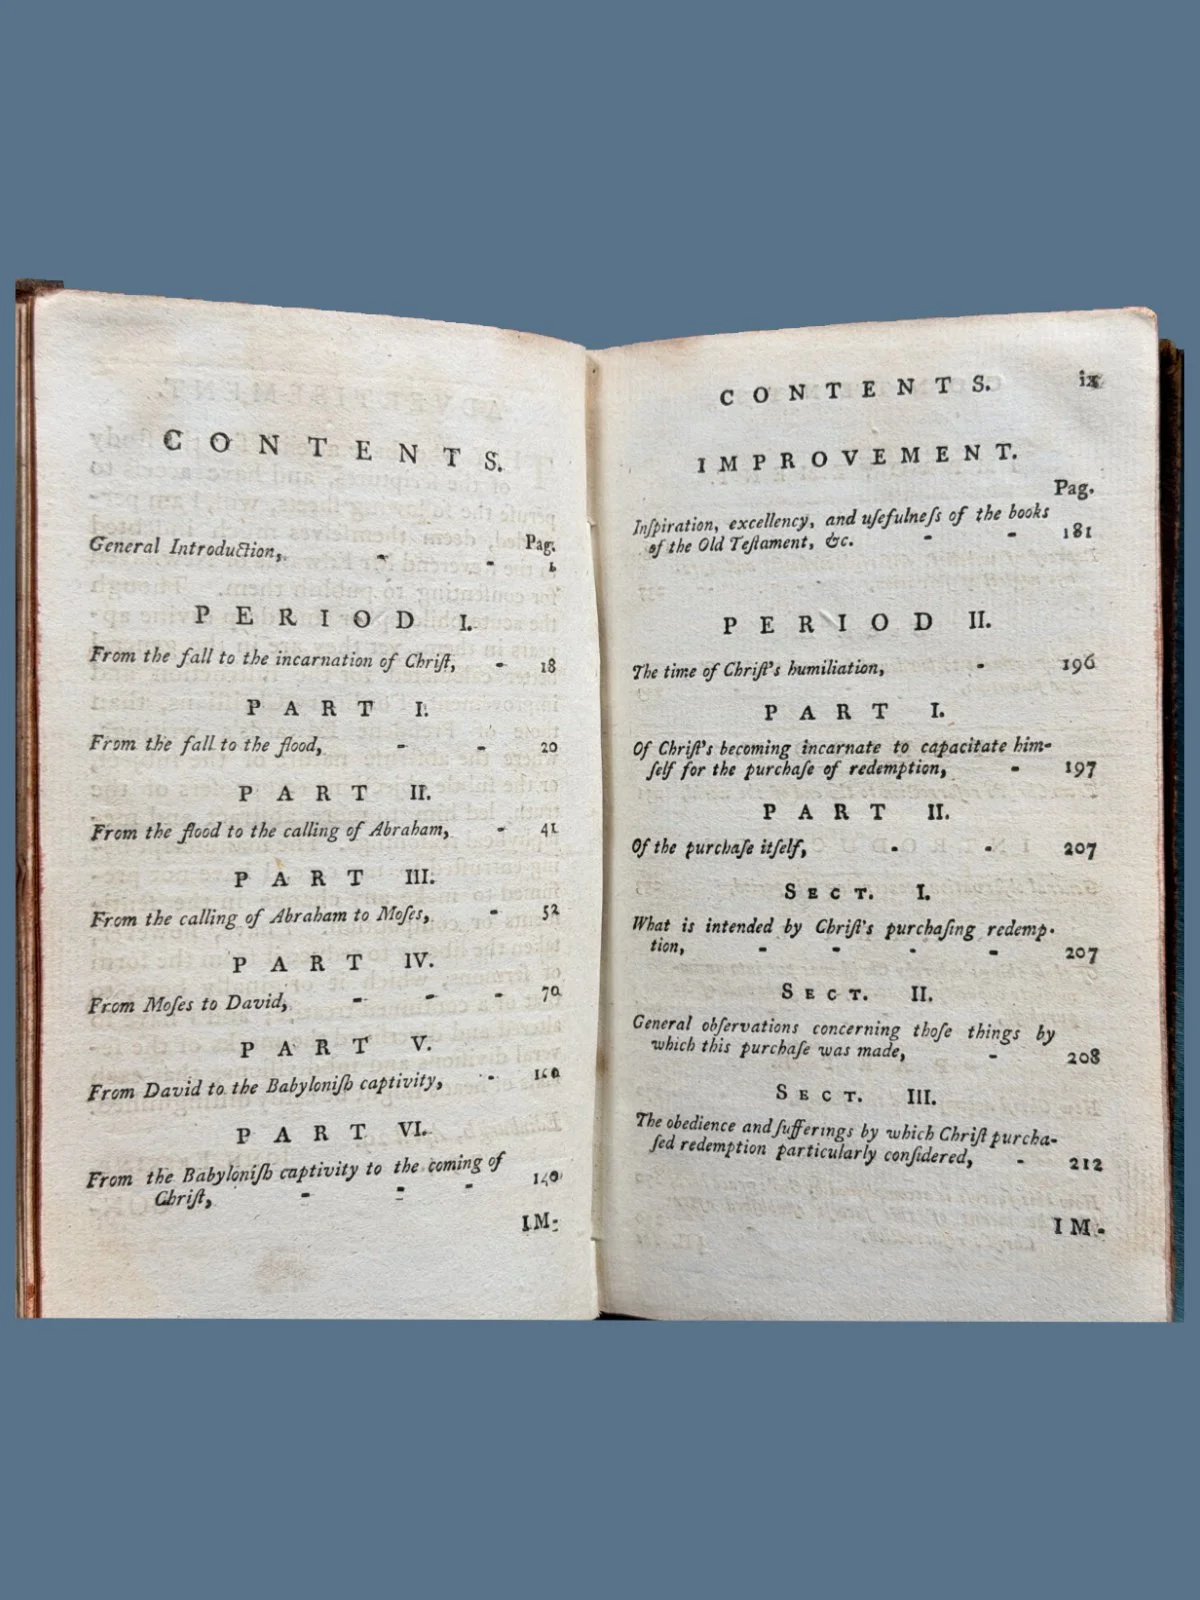 CONTENTS.
Pag.
General Introduction, - - 1
PERIOD I.
From the fall to the incarnation of Chriſt, - 18
PART I.
From the fall to the flood, - - 20
PART II.
From the flood to the calling of Abraham, - 41
PART III.
From the calling of Abraham to Moſes, - 52
PART IV.
From Moſes to David, - - - 70
PART V.
From David to the Babyloniſh captivity, -
PART VI.
From the Babyloniſh captivity to the coming of
Chriſt, - - - 140
IM-
CONTENTS. ix
IMPROVEMENT.
Pag.
Inſpiration, excellency, and uſefulneſs of the books
of the Old Teſtament, &c. - - 181
PERIOD II.
The time of Chriſt's humiliation, - 196
PART I.
Of Chriſt's becoming incarnate to capacitate him-
ſelf for the purchaſe of redemption, - 197
PART II.
Of the purchaſe itſelf, - - 207
SECT. I.
What is intended by Chriſt's purchaſing redemp-
tion, - - - - 207
SECT. II.
General obſervations concerning thoſe things by
which this purchaſe was made, - 208
SECT. III.
The obedience and ſufferings by which Chriſt purcha-
ſed redemption particularly conſidered, - 212
IM-